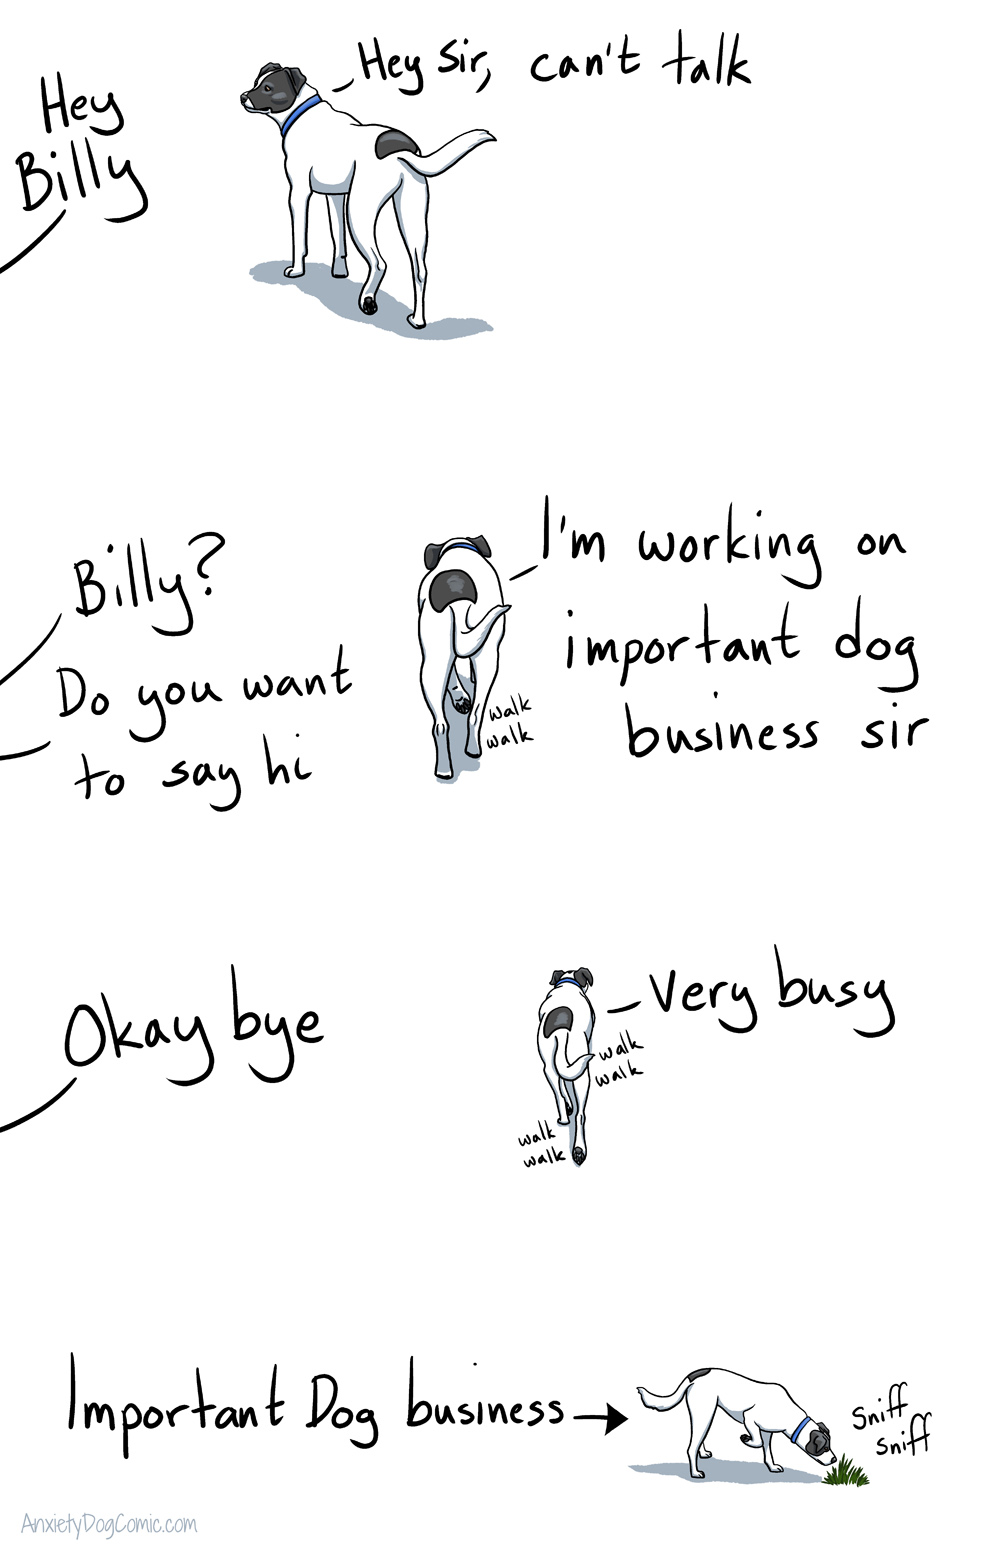 Hey
Billy
Hey Sir, can't talk
Billy?
Do you want
to say hi
I'm working on
important dog
business sir
walk
walk
Okay bye
Very busy
walk
walk
walk
walk
Important Dog business
sniff
sniff
AnxietyDogComic.com